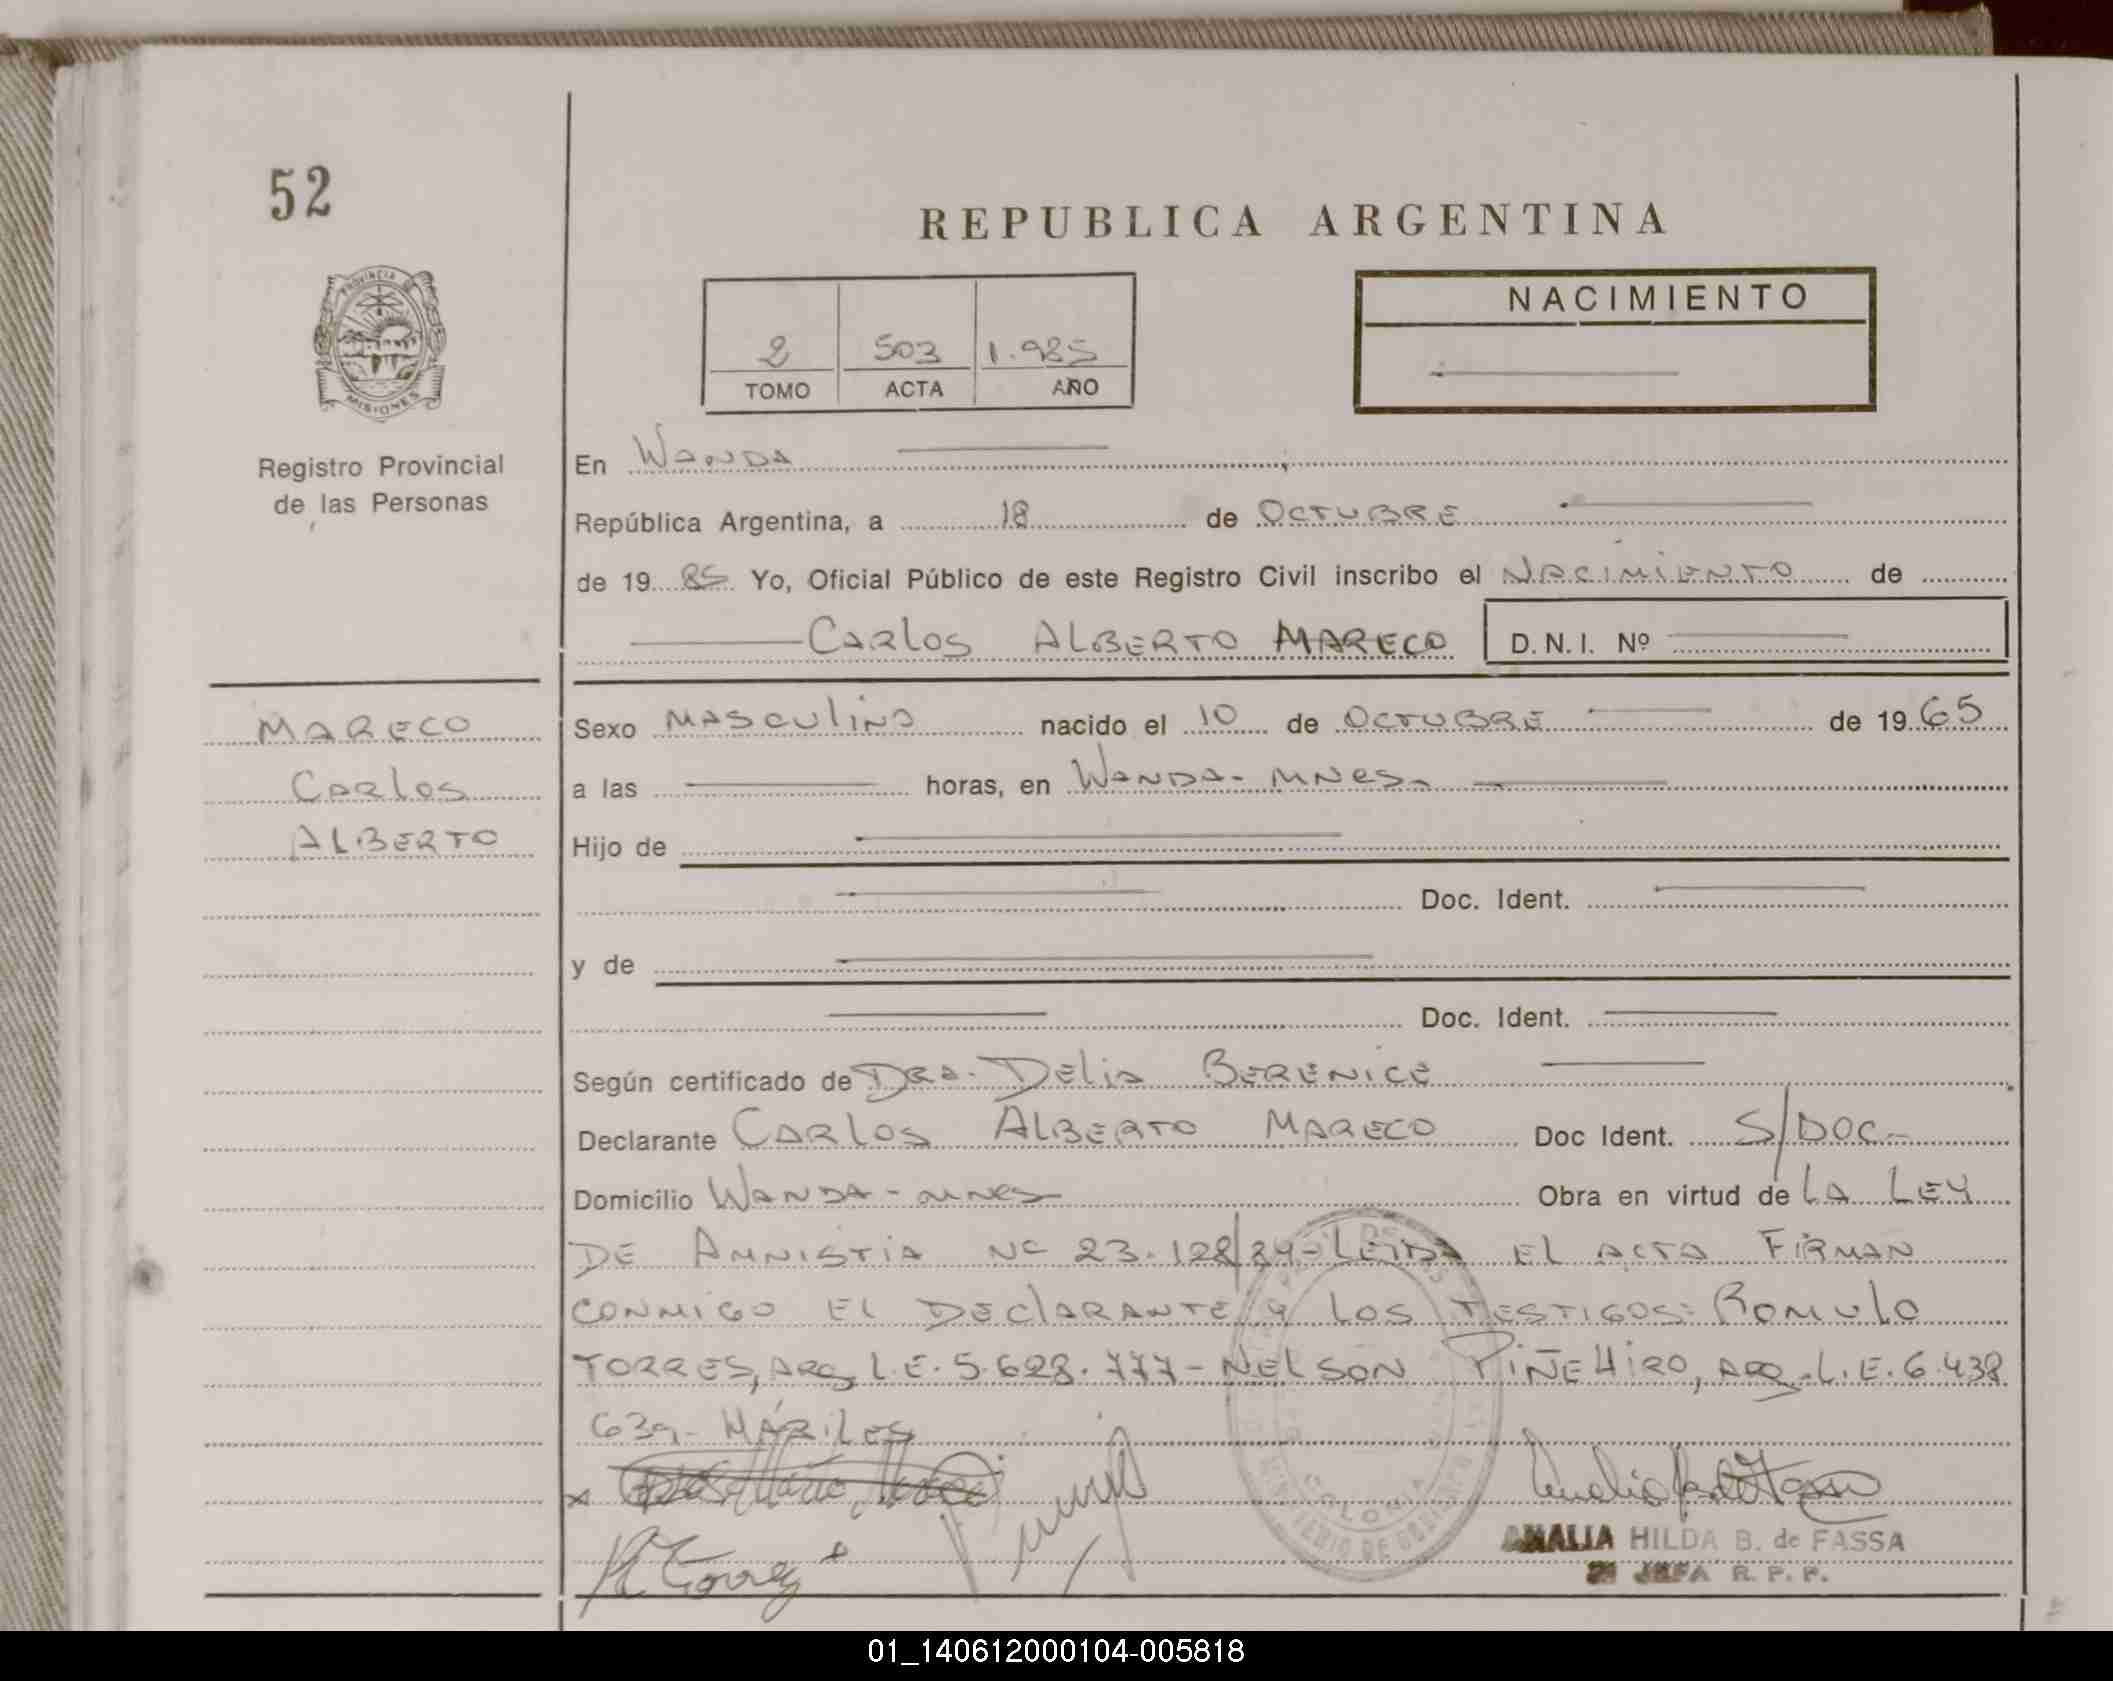 52
REPUBLICA ARGENTINA
PROVINCIA DE
MISIONES
NACIMIENTO
2 503 1.985
TOMO ACTA AÑO
Registro Provincial
de las Personas
En WANDA
República Argentina, a 18 de OCTUBRE
de 19 85 Yo, Oficial Público de este Registro Civil inscribo el NACIMIENTO de
CARLOS ALBERTO MARECO D.N.I. Nº
MARECO
CARLOS
ALBERTO
Sexo MASCULINO nacido el 10 de OCTUBRE de 19 65
a las horas, en WANDA - MNES-
Hijo de
Doc. Ident.
y de
Doc. Ident.
Según certificado de DRA. DELIA BERENICE
Declarante CARLOS ALBERTO MARECO Doc Ident. S/DOC-
Domicilio WANDA - MNES Obra en virtud de LA LEY
DE AMNISTIA Nº 23.128/84- LEIDA EL ACTA FIRMAN
CONMIGO EL DECLARANTE y LOS TESTIGOS: ROMULO
TORRES, ARG. L.E. 5.628.777 - NELSON PIÑEHIRO, ARG. L.E. 6.438
639-
x
R Torres +
COLONIA
AMALIA HILDA B. de FASSA
JEFA R. P. P.
01_140612000104-005818